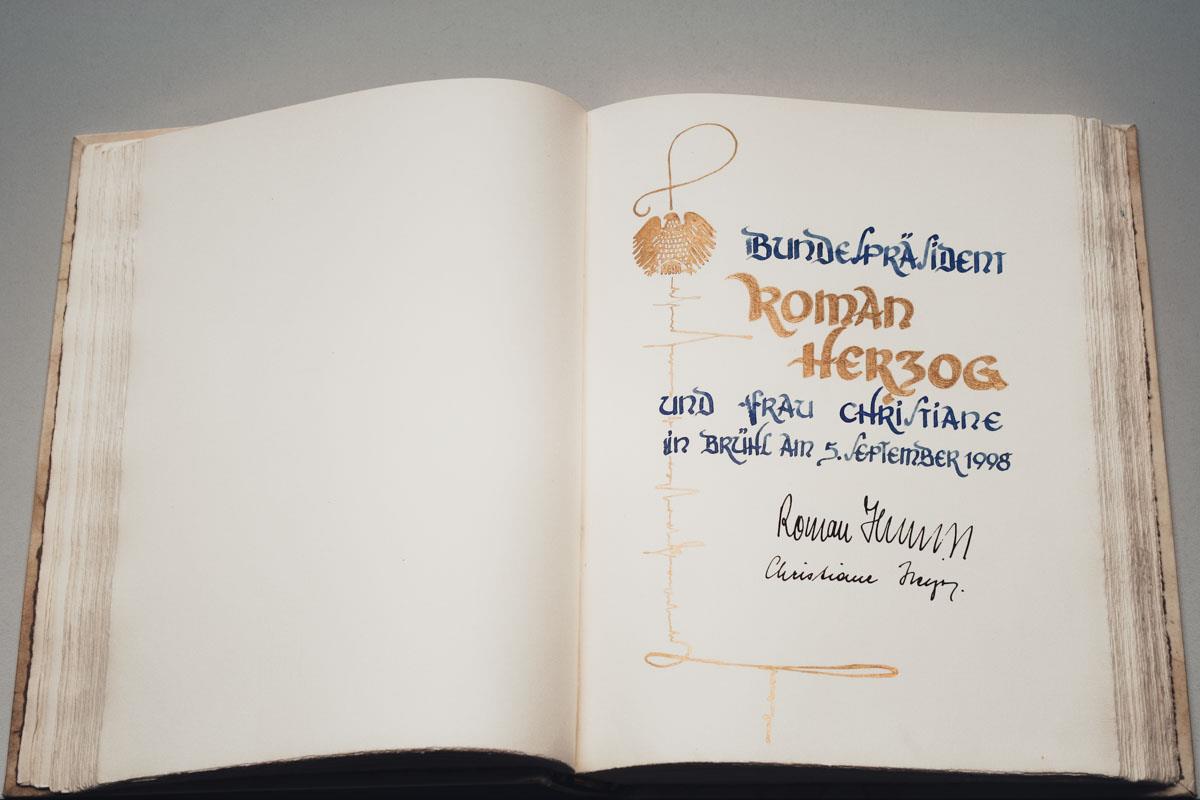 Bundespräsident
Roman
Herzog
und Frau Christiane
in Brühl am 5. September 1998
Roman Herzog
Christiane Herzog